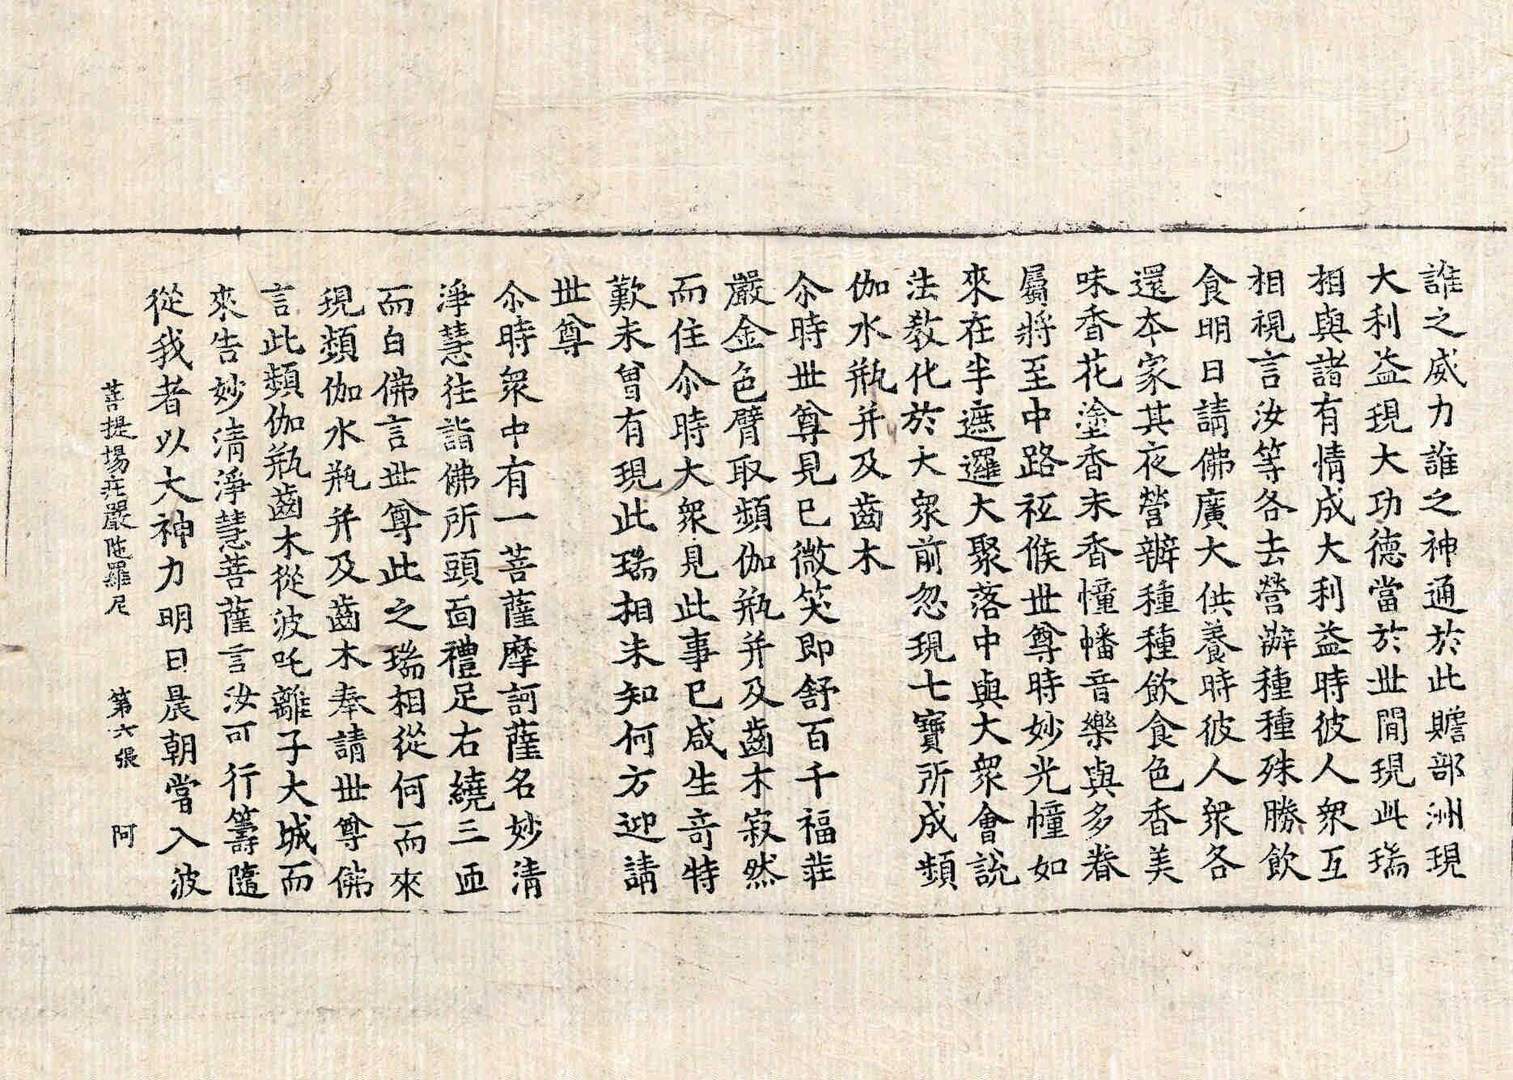 誰之威力誰之神通於此贍部洲現
大利益現大功德當於世間現此瑞
相與諸有情成大利益時彼人衆互
相視言汝等各去營辦種種殊勝飲
食明日請佛廣大供養時彼人衆各
還本家其夜營辦種種飲食色香美
味香花塗香末香幢幡音樂與多眷
屬將至中路祗候世尊時妙光幢如
來在半遮邏大聚落中與大衆會說
法教化於大衆前忽現七寶所成頻
伽水瓶并及齒木
尒時世尊見已微笑即舒百千福莊
嚴金色臂取頻伽瓶并及齒木寂然
而住尒時大衆見此事已咸生奇特
歎未曾有現此瑞相未知何方迎請
世尊
尒時衆中有一菩薩摩訶薩名妙清
淨慧往詣佛所頭面禮足右繞三匝
而白佛言世尊此之瑞相從何而來
現頻伽水瓶并及齒木奉請世尊佛
言此頻伽瓶齒木從波吒離子大城而
來告妙清淨慧菩薩言汝可行籌隨
從我者以大神力明日晨朝當入波
菩提場莊嚴陁羅尼 第六張 阿